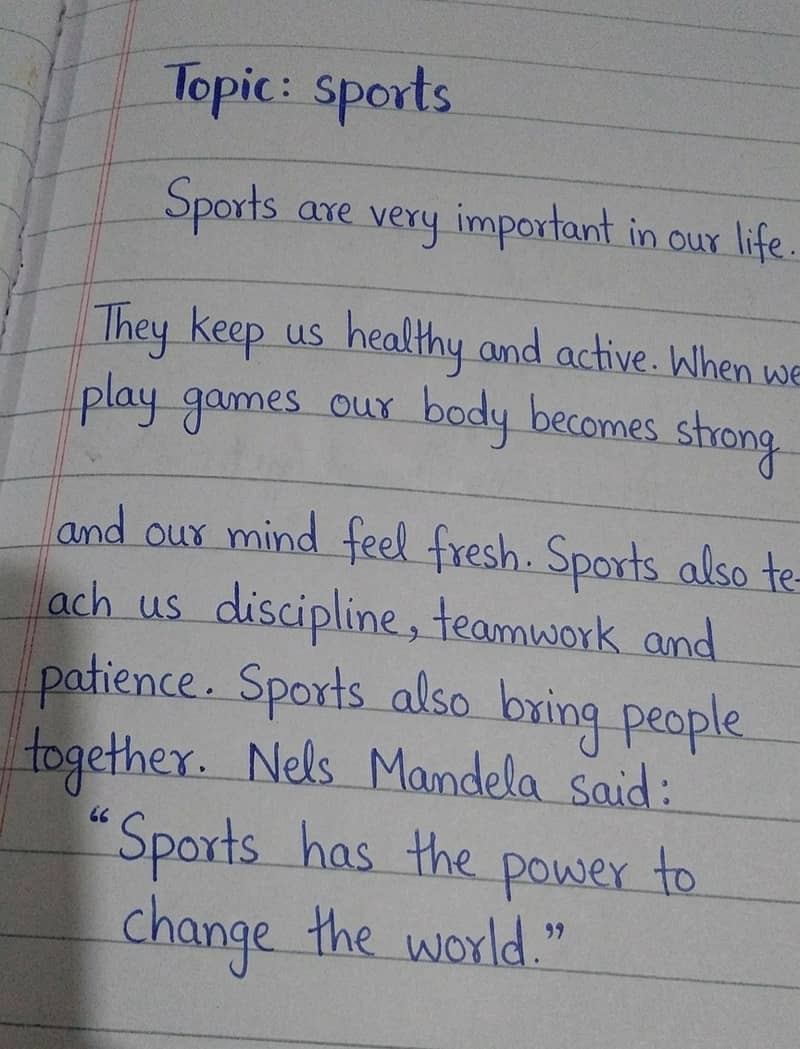 Topic: sports
Sports are very important in our life.
They keep us healthy and active. When we
play games our body becomes strong
and our mind feel fresh. Sports also te-
ach us discipline, teamwork and
patience. Sports also bring people
together. Nels Mandela said:
“Sports has the power to
change the world.”